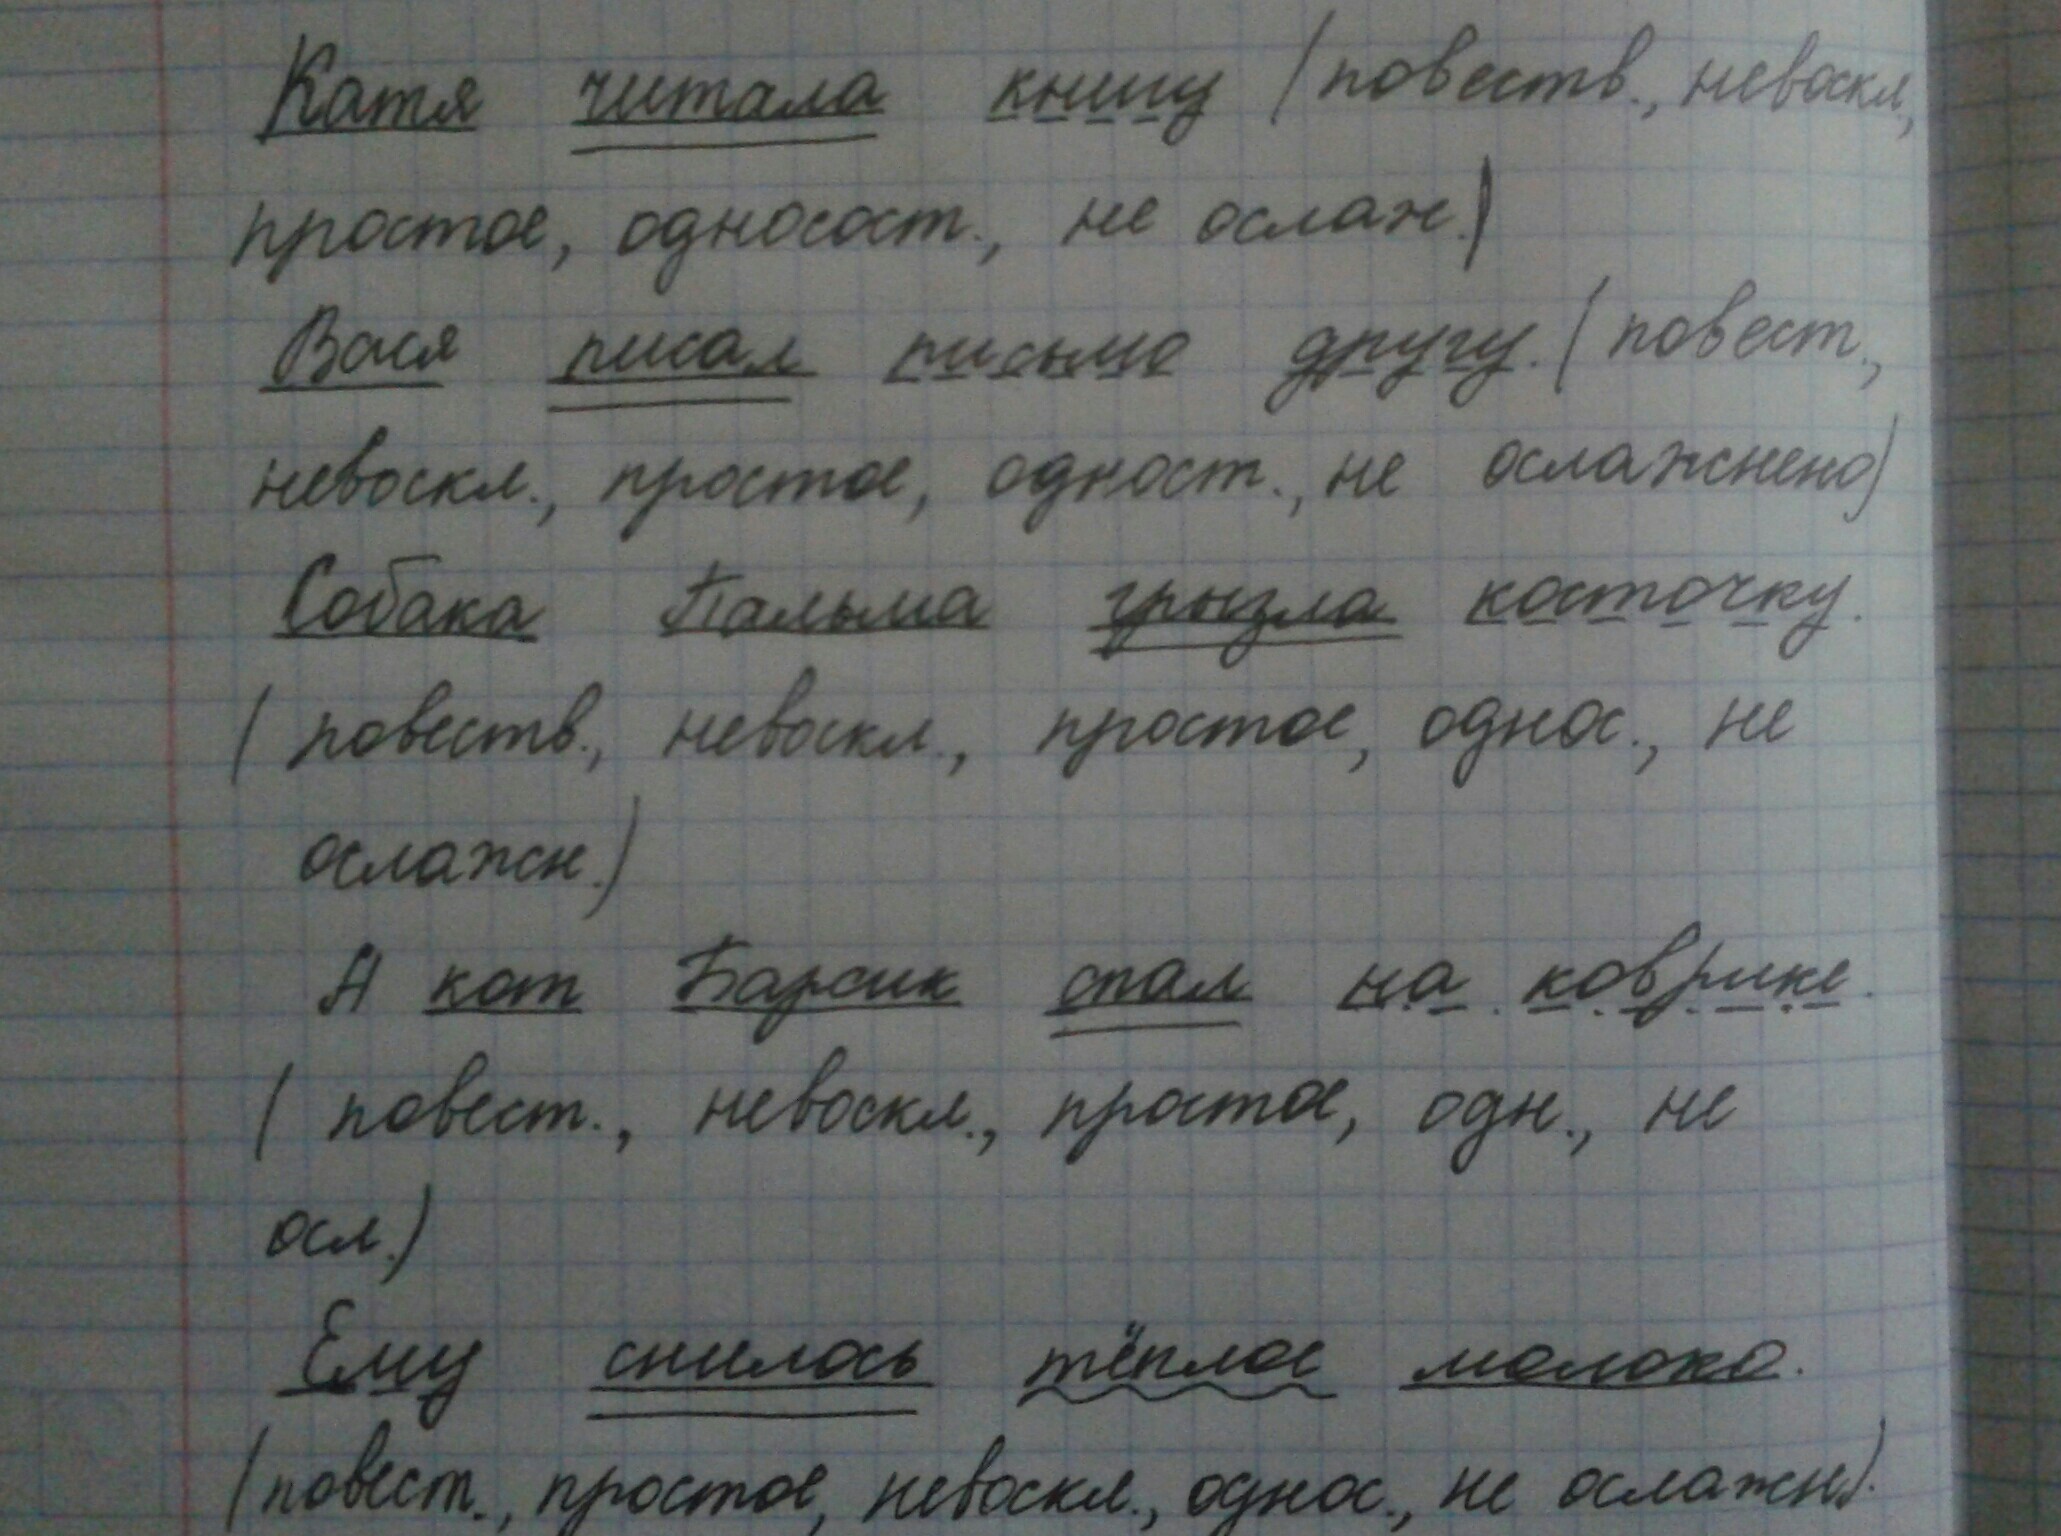 Катя читала книгу (повеств., невоскл.,
простое, односост., не ослаж.)
Вася писал письмо другу. (повест.,
невоскл., простое, одност., не ослажнено)
Собака Пальма грызла косточку.
(повеств., невоскл., простое, однос., не
ослажн.)
А кот Барсик спал на коврике.
(повест., невоскл., простое, одн., не
осл.)
Ему снилось тёплое молоко.
(повест., простое, невоскл., однос., не ослажн).